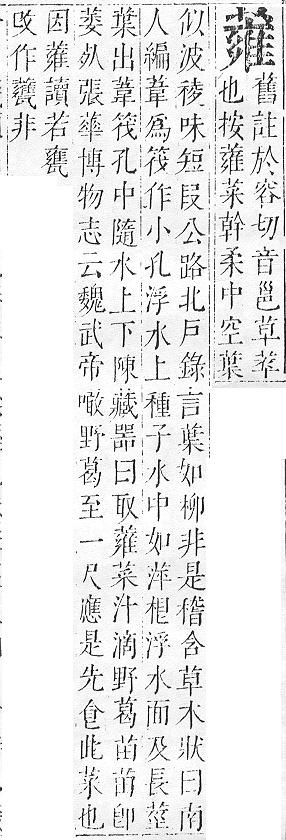 蕹
舊註於容切音邕草蕐
也按蕹菜幹柔中空葉
似波稜味短叚公路北戸錄言葉如柳非是稽含草木狀曰南
人編葦爲筏作小孔浮水上種子水中如萍根浮水面及長莖
葉出葦筏孔中隨水上下陳藏噐曰取蕹菜汁滴野葛苗苗卽
萎死張華博物志云魏武帝噉野葛至一尺應是先食此菜也
因蕹讀若甕
攺作虀非